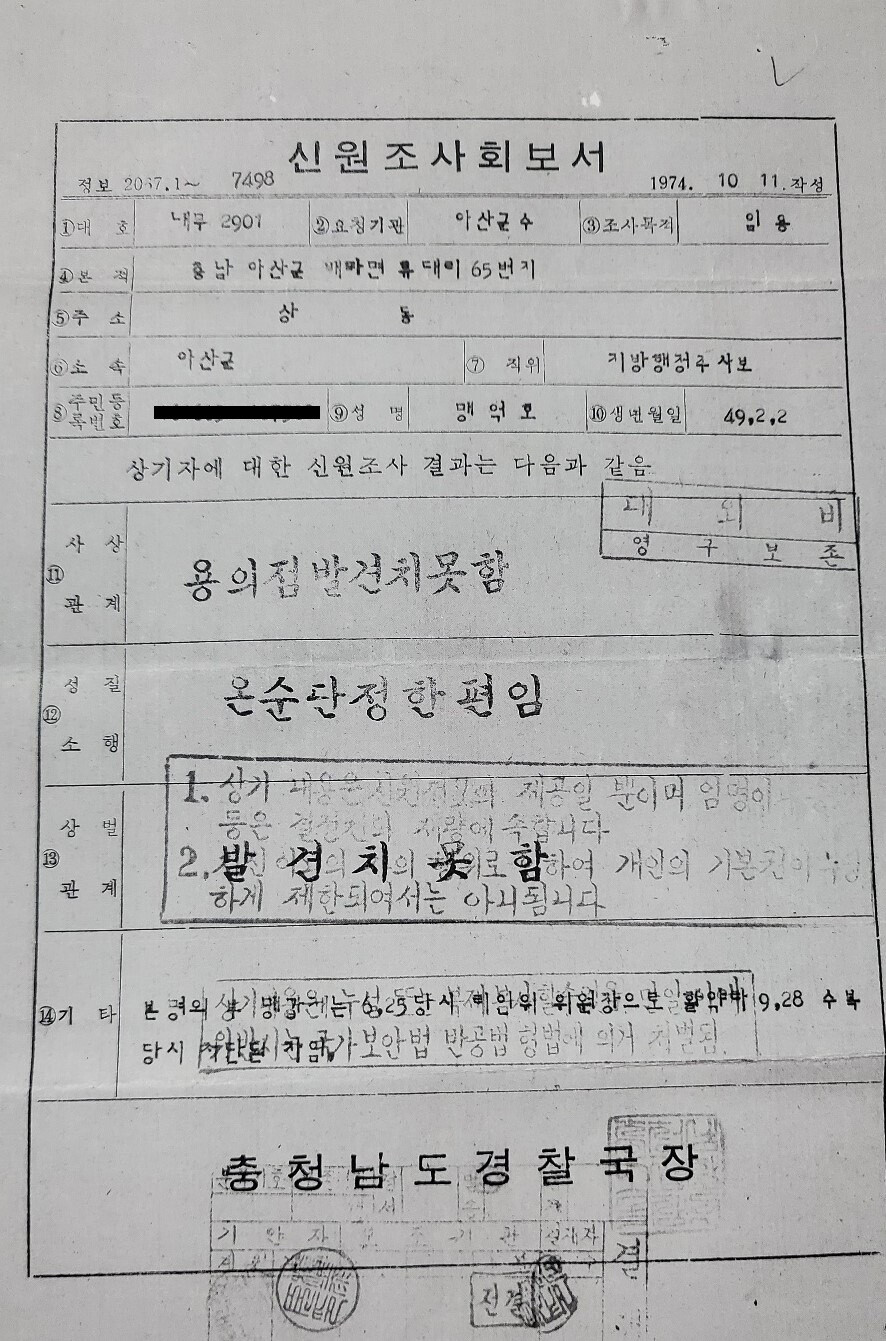 신원조사회보서
정보 2067.1~ 7498 1974. 10 11. 작성
①대 호 내무 2901 ②요청기관 아산군수 ③조사목적 임용
④본 적 충남 아산군 배방면 휴대리 65번지
⑤주 소 상 동
⑥소 속 아산군 ⑦ 직위 지방행정주사보
⑧주민등록번호 ⑨성 명 맹억호 ⑩생년월일 49,2,2
상기자에 대한 신원조사 결과는 다음과 같음
대 외 비
영 구 보 존
⑪ 사상관계 용의점발견치못함
⑫ 성질소행 온순단정한편임
⑬ 상벌관계 발견치못함
1. 상기 내용은 신원정보의 제공일 뿐이며 임명이
등은 결정권의 재량에 속합니다
2. 하여 개인의 기본권이
하게 제한되어서는 아니됩니다
⑭기 타 본명의 부 는 6,25당시 위원장으로 9,28 수복
당시 처단된 자임.
국가보안법 반공법 형법에 의거 처벌됨
충청남도경찰국장
기 안 자
전결